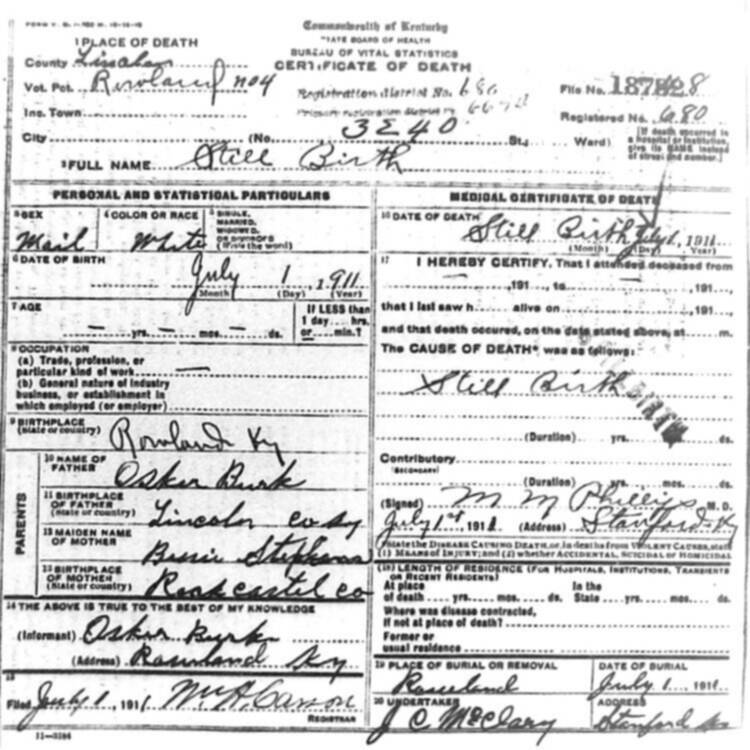 Commonwealth of Kentucky
STATE BOARD OF HEALTH
BUREAU OF VITAL STATISTICS
CERTIFICATE OF DEATH
1 PLACE OF DEATH
County Lincoln
Vot. Pct. Rowland No 4
Inc. Town
City
Registration District No. 680
Primary registration district No.
File No. 18728
Registered No. 680
(No. 3240 St., Ward)
[If death occurred in a hospital or institution, give its NAME instead of street and number.]
2 FULL NAME Still Birth
PERSONAL AND STATISTICAL PARTICULARS
3 SEX
Mail
4 COLOR OR RACE
White
5 SINGLE, MARRIED, WIDOWED, OR DIVORCED (Write the word)
6 DATE OF BIRTH
July 1, 1911
(Month) (Day) (Year)
7 AGE
— yrs. — mos. — ds.
If LESS than 1 day .... hrs. or .... min.?
8 OCCUPATION
(a) Trade, profession, or particular kind of work —
(b) General nature of industry business, or establishment in which employed (or employer)
9 BIRTHPLACE
(State or country) Rowland Ky
PARENTS
10 NAME OF FATHER
Osker Burk
11 BIRTHPLACE OF FATHER
(State or country) Lincoln co Ky
12 MAIDEN NAME OF MOTHER
Stephens
13 BIRTHPLACE OF MOTHER
(State or country) Rockcastel co
14 THE ABOVE IS TRUE TO THE BEST OF MY KNOWLEDGE
(Informant) Osker Burk
(Address) Rowland Ky
15
Filed July 1, 1911 Carson
REGISTRAR
11-3184
MEDICAL CERTIFICATE OF DEATH
16 DATE OF DEATH
Still Birth July 1, 1911
(Month) (Day) (Year)
17 I HEREBY CERTIFY, That I attended deceased from
, 191 , to , 191 ,
that I last saw h alive on , 191 ,
and that death occured, on the date stated above, at m.
The CAUSE OF DEATH* was as follows:
Still Birth
(Duration) yrs. mos. ds.
Contributory
(SECONDARY)
(Duration) yrs. mos. ds.
(Signed) M M Phillips M. D.
July 1st, 1911 (Address) Stanford Ky
*State the DISEASE CAUSING DEATH, or, in deaths from VIOLENT CAUSES, state (1) MEANS OF INJURY; and (2) whether ACCIDENTAL, SUICIDAL or HOMICIDAL
18 LENGTH OF RESIDENCE (FOR HOSPITALS, INSTITUTIONS, TRANSIENTS OR RECENT RESIDENTS)
At place of death yrs. mos. ds.
In the State yrs. mos. ds.
Where was disease contracted, if not at place of death?
Former or usual residence
19 PLACE OF BURIAL OR REMOVAL
Rowland
DATE OF BURIAL
July 1, 1911
20 UNDERTAKER
J C McClary
ADDRESS
Stanford Ky